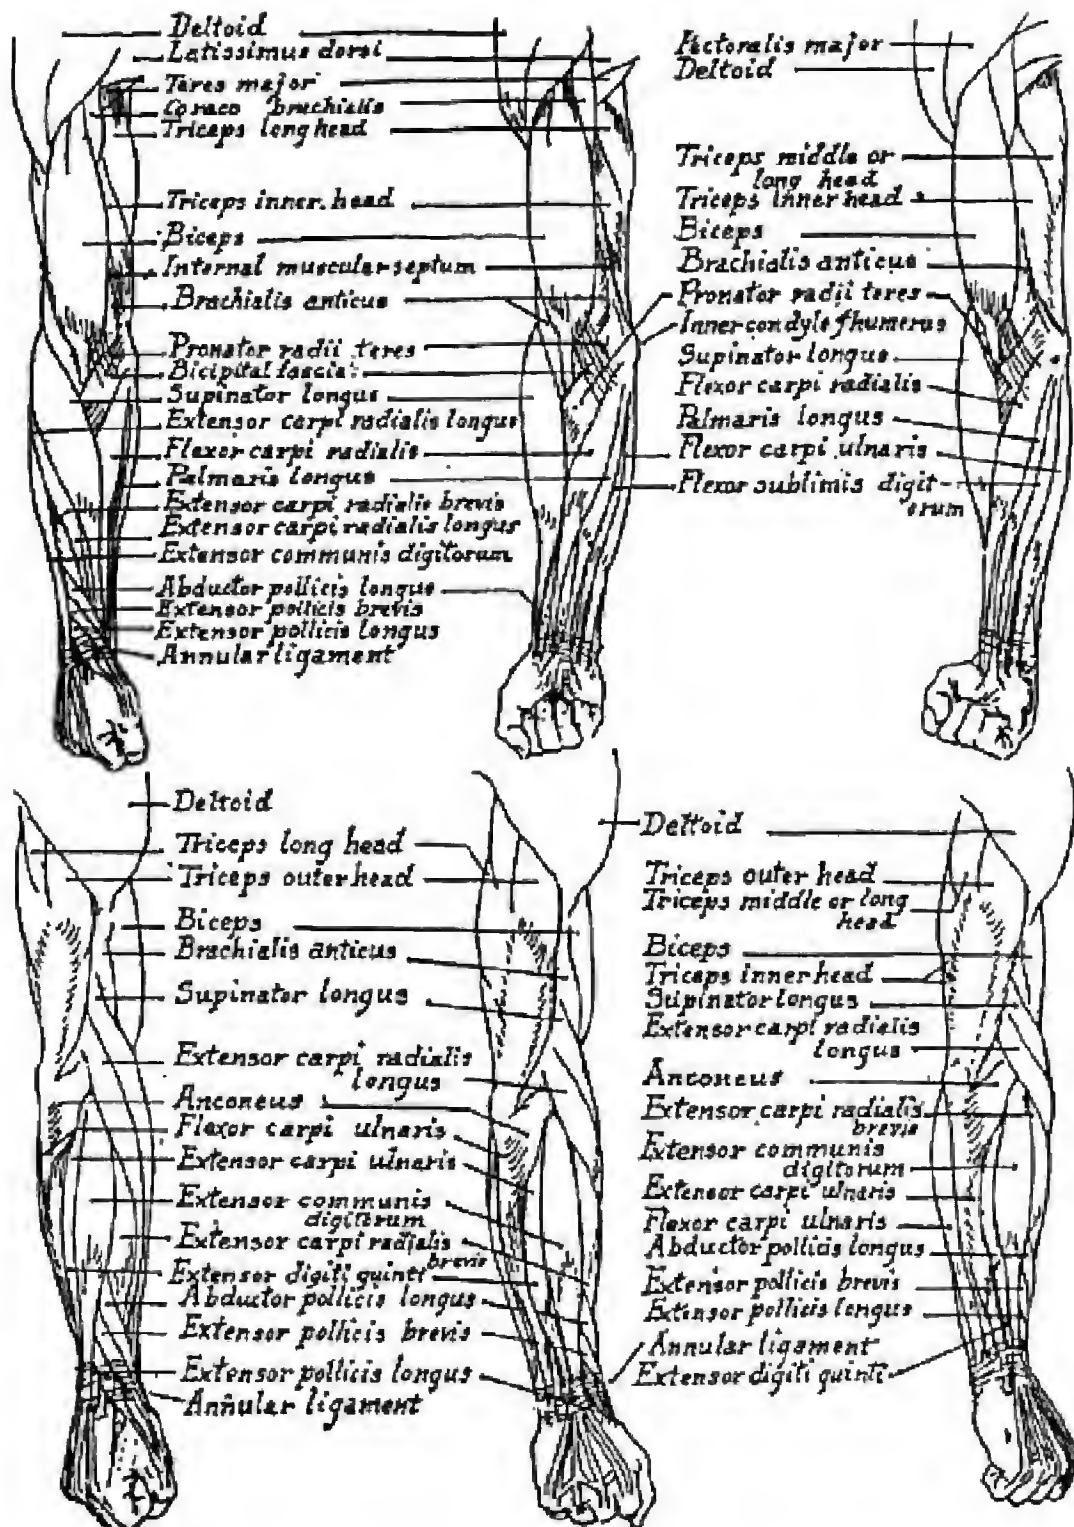 Deltoid
Latissimus dorsi
Teres major
Coraco brachialis
Triceps long head
Triceps inner head
Biceps
Internal muscular septum
Brachialis anticus
Pronator radii teres
Bicipital fascia
Supinator longus
Extensor carpi radialis longus
Flexor carpi radialis
Palmaris longus
Extensor carpi radialis brevis
Extensor carpi radialis longus
Extensor communis digitorum
Abductor pollicis longus
Extensor pollicis brevis
Extensor pollicis longus
Annular ligament
Pectoralis major
Deltoid
Triceps middle or
long head
Triceps inner head
Biceps
Brachialis anticus
Pronator radii teres
Inner condyle of humerus
Supinator longus
Flexor carpi radialis
Palmaris longus
Flexor carpi ulnaris
Flexor sublimis digit-
orum
Deltoid
Triceps long head
Triceps outer head
Biceps
Brachialis anticus
Supinator longus
Extensor carpi radialis
longus
Anconeus
Flexor carpi ulnaris
Extensor carpi ulnaris
Extensor communis
digitorum
Extensor carpi radialis
brevis
Extensor digiti quinti
Abductor pollicis longus
Extensor pollicis brevis
Extensor pollicis longus
Annular ligament
Deltoid
Triceps outer head
Triceps middle or long
head
Biceps
Triceps inner head
Supinator longus
Extensor carpi radialis
longus
Anconeus
Extensor carpi radialis
brevis
Extensor communis
digitorum
Extensor carpi ulnaris
Flexor carpi ulnaris
Abductor pollicis longus
Extensor pollicis brevis
Extensor pollicis longus
Annular ligament
Extensor digiti quinti